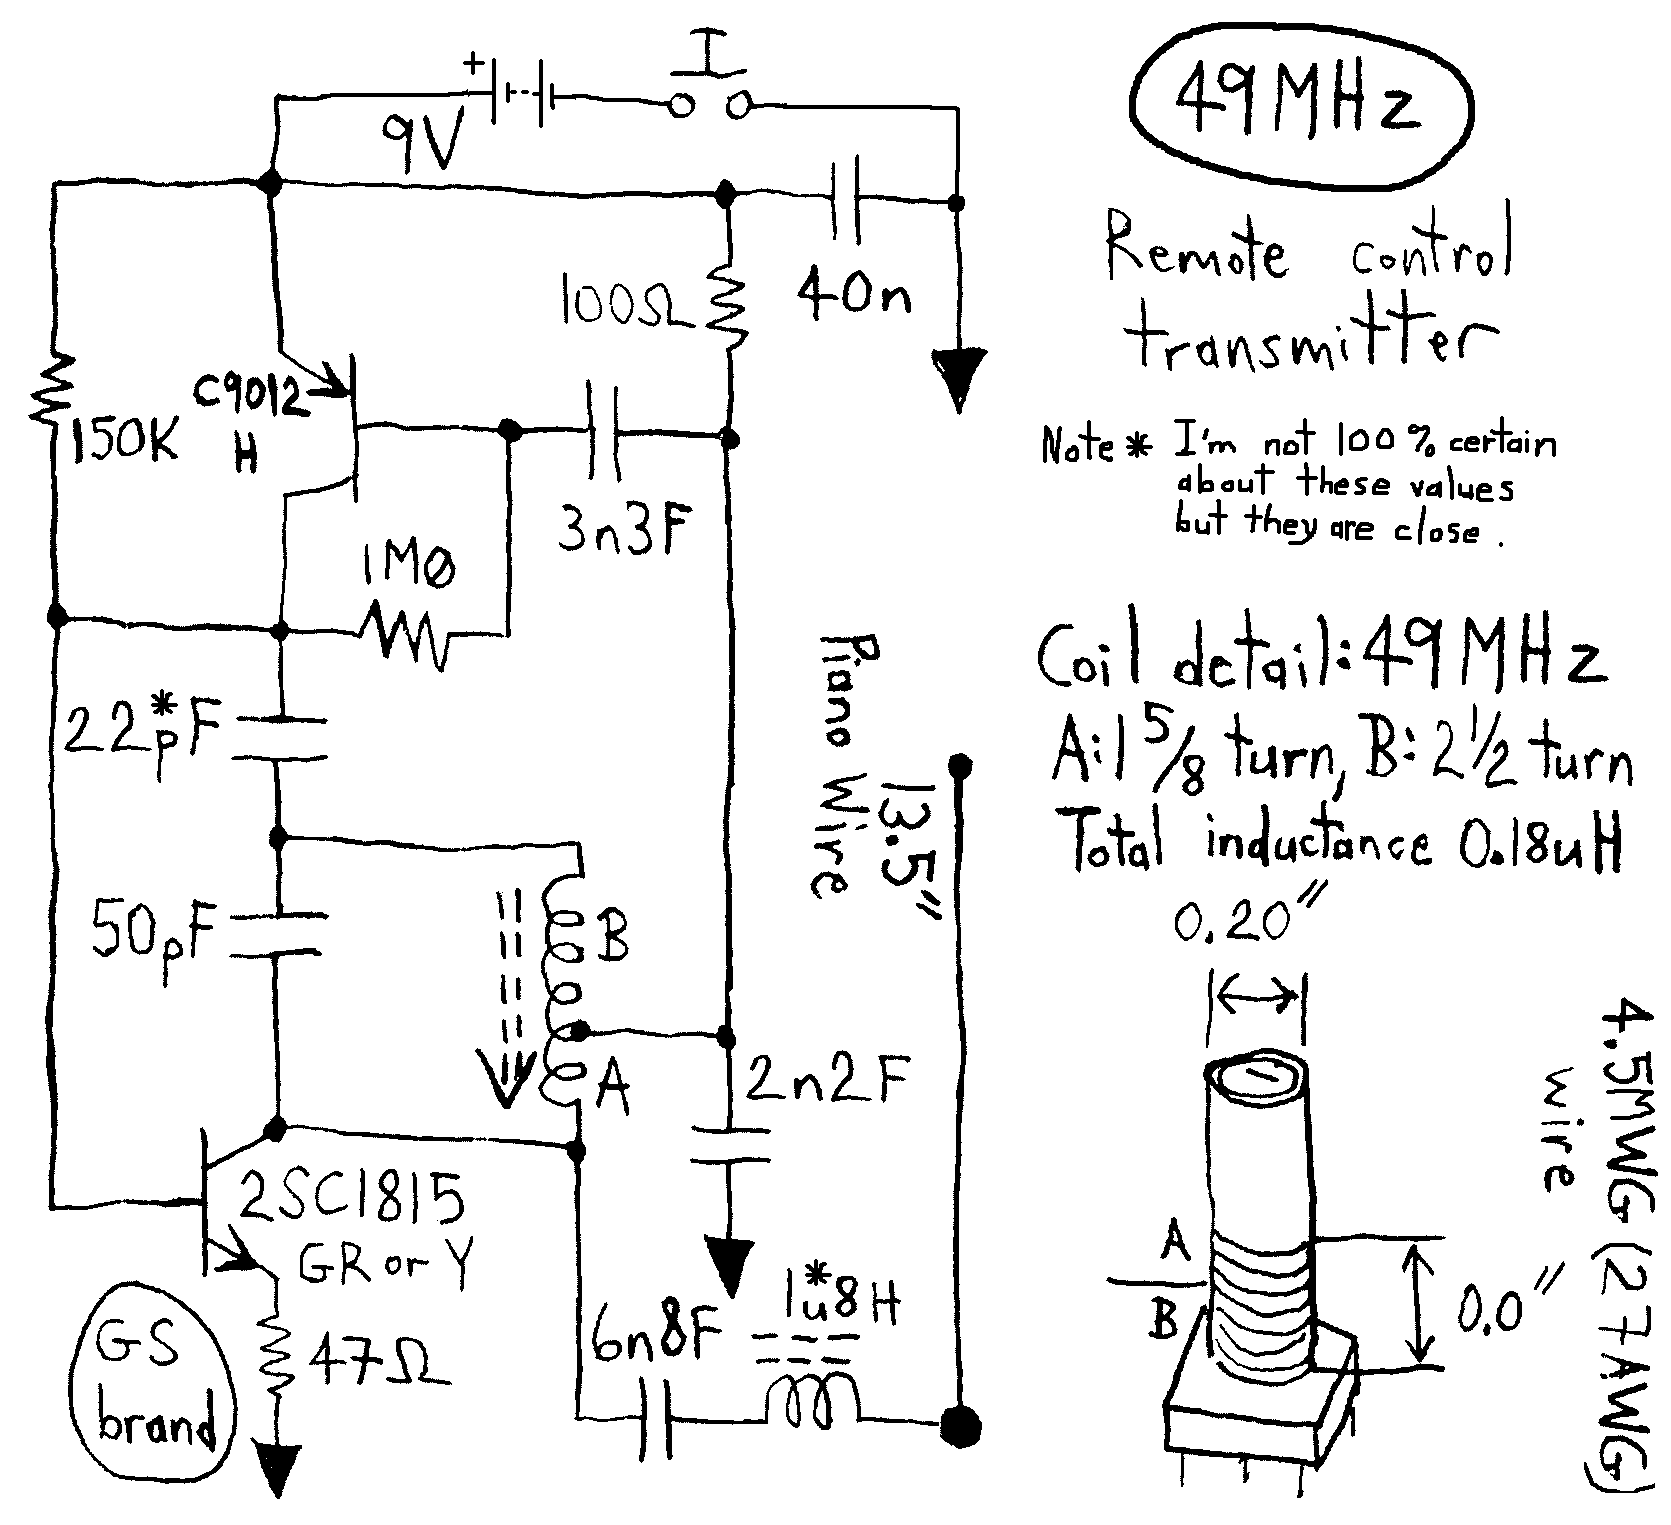 49MHz
Remote control
transmitter
Note * I'm not 100% certain
about these values
but they are close.
+
9V
I
100Ω
40n
C9012
H
150K
3n3F
1M0
22pF
*
50pF
B
A
2n2F
Piano Wire
13.5"
2SC1815
GR or Y
47Ω
GS
brand
6n8F
1u8H
*
Coil detail: 49MHz
A: 1 5/8 turn, B: 2 1/2 turn
Total inductance 0.18uH
0.20"
A
B
0.0"
4.5MWG (27AWG)
wire